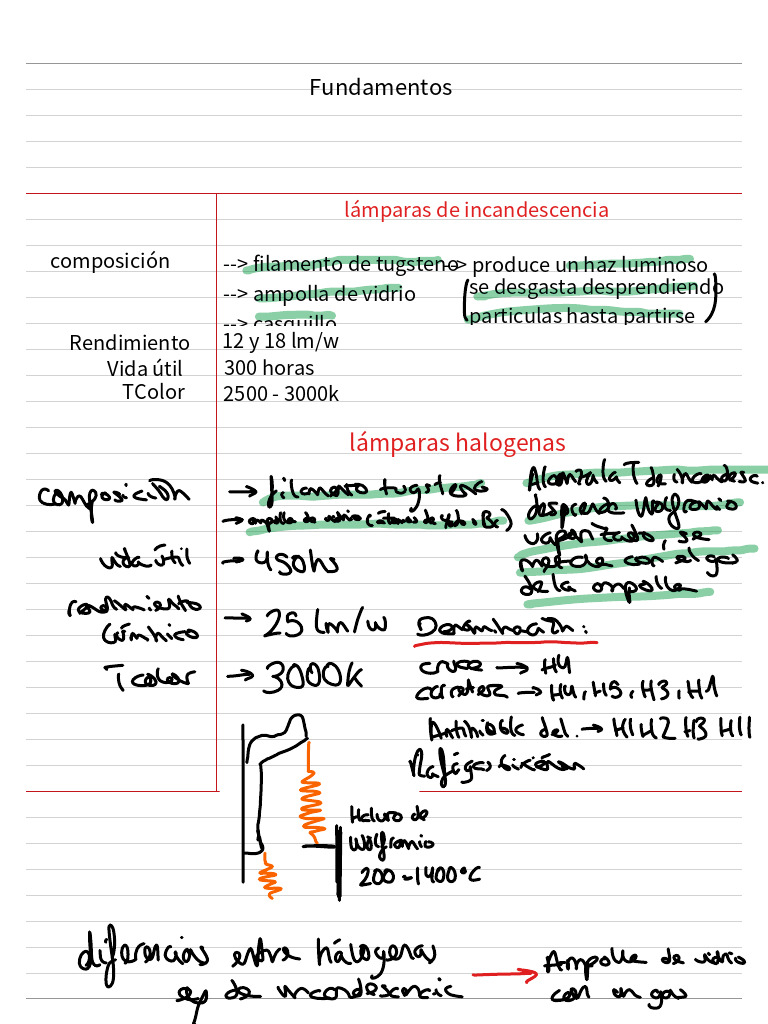 Fundamentos
lámparas de incandescencia
composición
--> filamento de tugsteno--> produce un haz luminoso
(se desgasta desprendiendo
--> ampolla de vidrio
particulas hasta partirse)
--> casquillo
Rendimiento 12 y 18 lm/w
Vida útil 300 horas
TColor 2500 - 3000k
lámparas halogenas
composición → filamento tugsteno
→ ampolla de vidrio (átomos de Yodo o Br)
Alcanza la T de incandesc.
desprende Wolframio
vaporizado, se
mezcla con el gas
de la ampolla
vida útil → 450hs
rendimiento
lúmnico → 25 lm/w
T color → 3000K
Denominación:
cruce → H4
carretera → H4, H5, H3, H1
Antiniebla del. → H1 H2 H3 H11
Rafagas
Haluro de
Wolframio
200 - 1400°C
diferencias entre hálogenas
de incandescencia
→ Ampolla de vidrio
con un gas